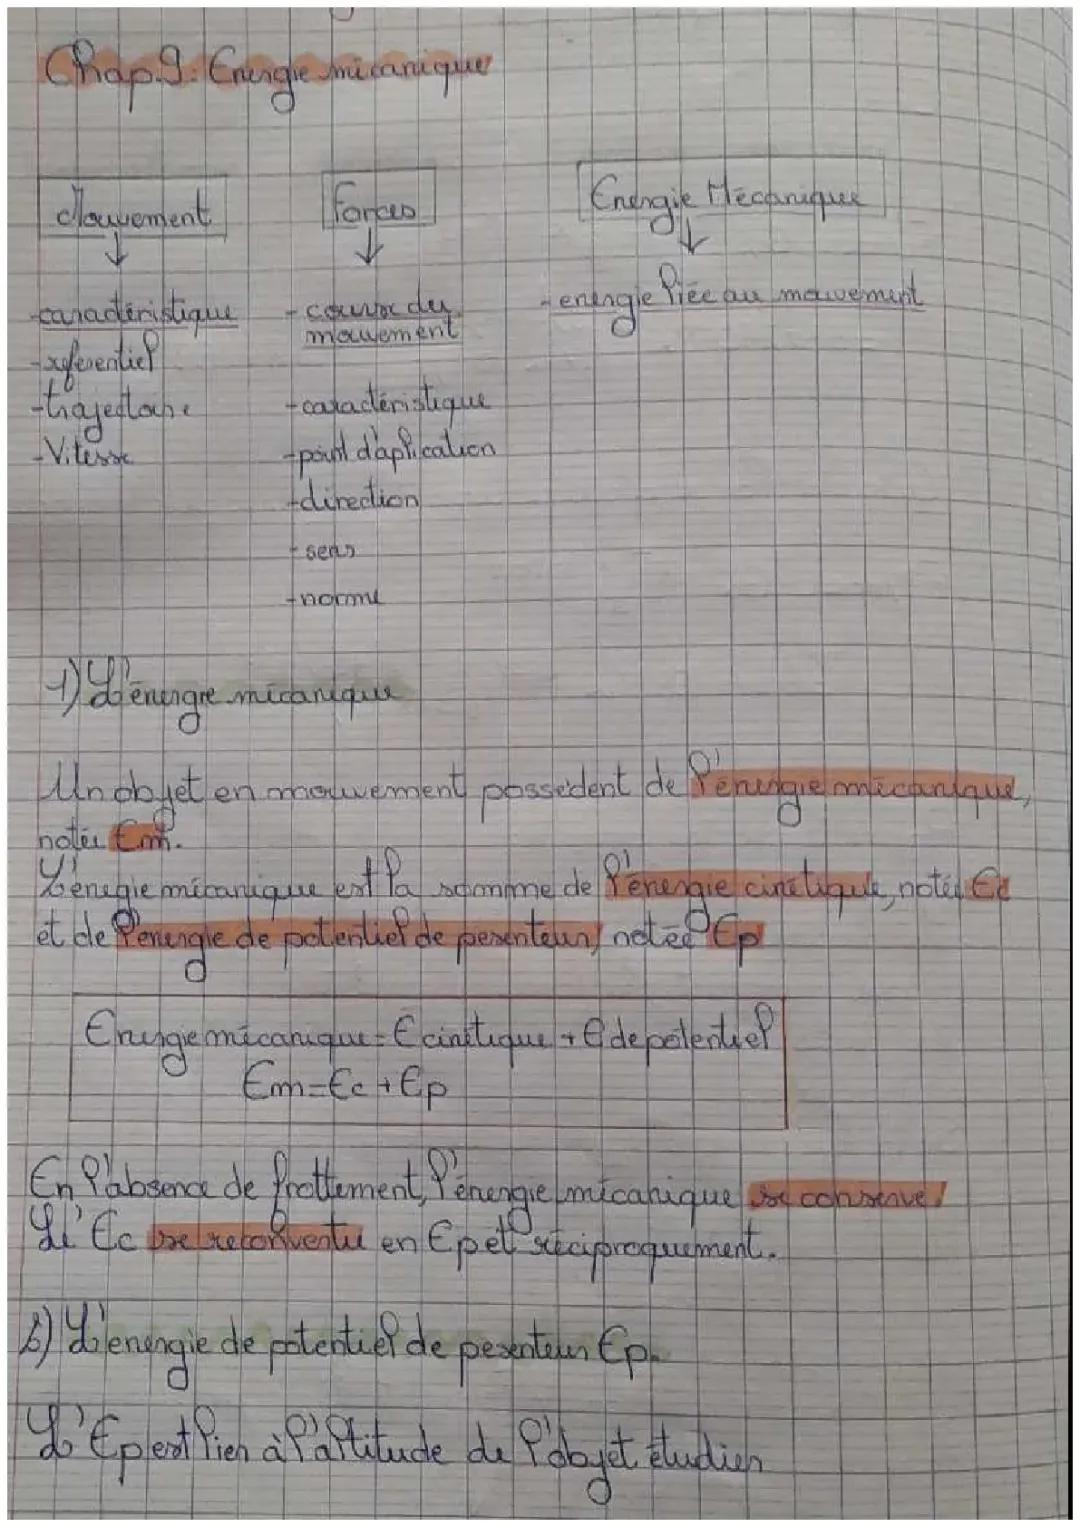 Chap.9: Energie mécanique
Mouvement
Forces
Energie Mécanique
-caractéristique
-referentiel
-trajectoire
-Vitesse
- cause du
mouvement
-caractéristique
-point d'aplication
-direction
-sens
-norme
-energie liée au mouvement
1) L'énergie mécanique
Un objet en mouvement possèdent de l'énergie mécanique,
notée Em.
L'énegie mécanique est la somme de l'énergie cinétique, notée Ec
et de l'energie de potentiel de pesenteur, notée Ep
Energie mécanique = E cinétique + E de potentiel
Em = Ec + Ep
En l'absence de frottement, l'énergie mécanique se conserve.
L'Ec se reconvertie en Ep et réciproquement.
2) L'energie de potentiel de pesenteur Ep.
L'Ep est lien à l'altitude de l'objet étudier